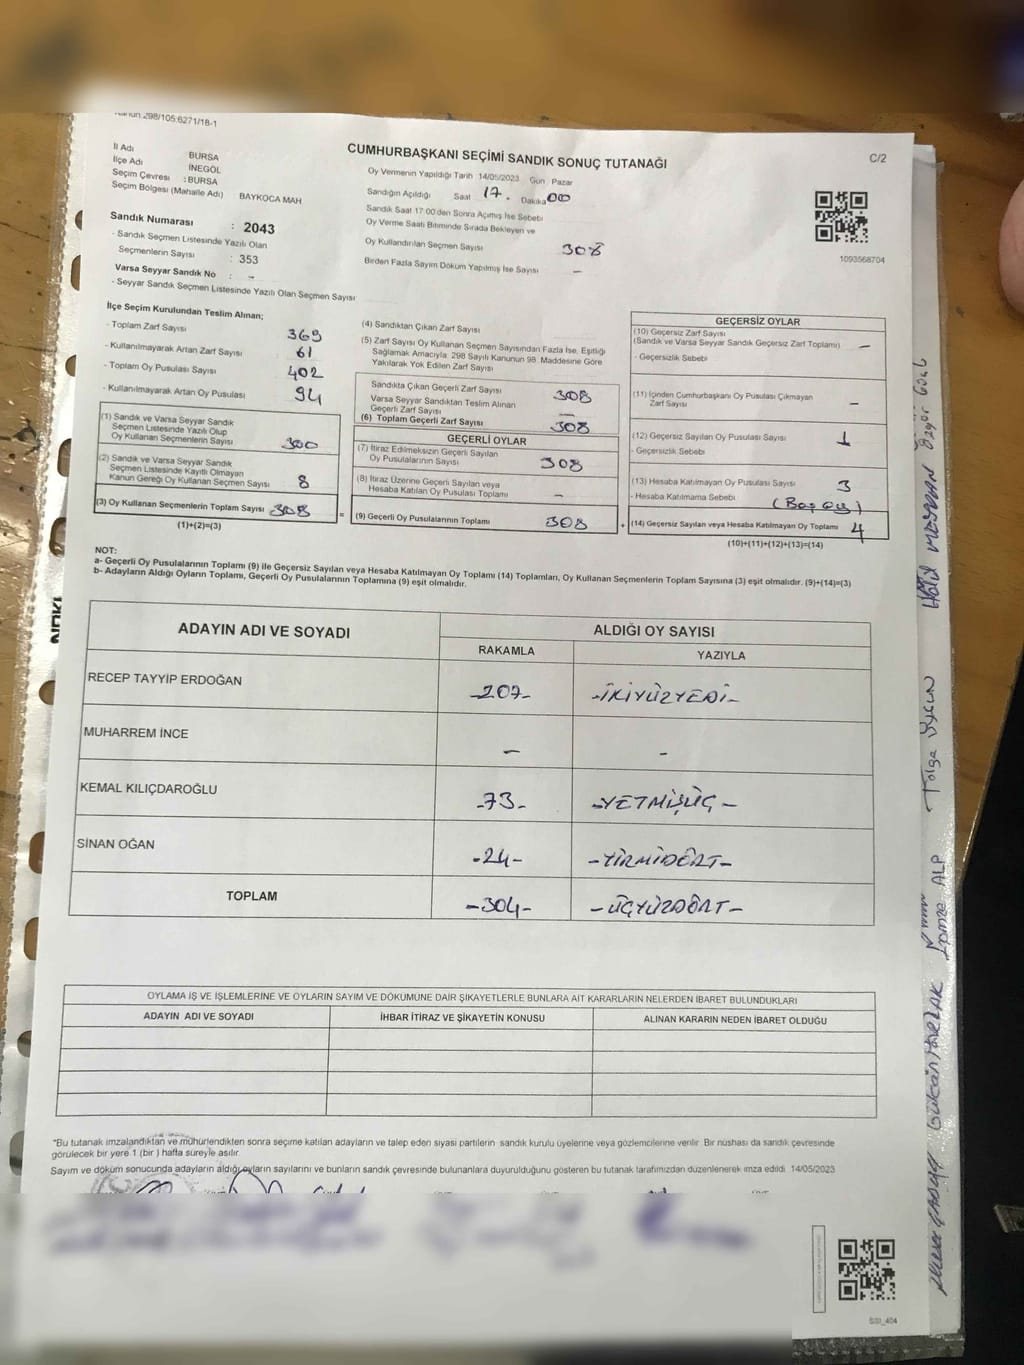 Kanun 298/105;6271/18-1
CUMHURBAŞKANI SEÇİMİ SANDIK SONUÇ TUTANAĞI
C/2
İl Adı BURSA
İlçe Adı İNEGÖL
Seçim Çevresi :BURSA
Seçim Bölgesi (Mahalle Adı) BAYKOCA MAH
Oy Vermenin Yapıldığı Tarih 14/05/2023 Gün Pazar
Sandığın Açıldığı Saat 17. Dakika 00
Sandık Saat 17:00'den Sonra Açımış İse Sebebi
Oy Verme Saati Bitiminde Sırada Bekleyen ve
Oy Kullandırılan Seçmen Sayısı 308
Birden Fazla Sayım Döküm Yapılmış İse Sayısı -
1093568704
Sandık Numarası : 2043
- Sandık Seçmen Listesinde Yazılı Olan
Seçmenlerin Sayısı : 353
Varsa Seyyar Sandık No : -
- Seyyar Sandık Seçmen Listesinde Yazılı Olan Seçmen Sayısı
İlçe Seçim Kurulundan Teslim Alınan;
- Toplam Zarf Sayısı 369
- Kullanılmayarak Artan Zarf Sayısı 61
- Toplam Oy Pusulası Sayısı 402
- Kullanılmayarak Artan Oy Pusulası 94
(1) Sandık ve Varsa Seyyar Sandık
Seçmen Listesinde Yazılı Olup
Oy Kullanan Seçmenlerin Sayısı 300
(2) Sandık ve Varsa Seyyar Sandık
Seçmen Listesinde Kayıtlı Olmayan
Kanun Gereği Oy Kullanan Seçmen Sayısı 8
(3) Oy Kullanan Seçmenlerin Toplam Sayısı 308
(1)+(2)=(3)
(4) Sandıktan Çıkan Zarf Sayısı
(5) Zarf Sayısı Oy Kullanan Seçmen Sayısından Fazla İse, Eşitliği
Sağlamak Amacıyla 298 Sayılı Kanunun 98. Maddesine Göre
Yakılarak Yok Edilen Zarf Sayısı
Sandıkta Çıkan Geçerli Zarf Sayısı 308
Varsa Seyyar Sandıktan Teslim Alınan
Geçerli Zarf Sayısı -
(6) Toplam Geçerli Zarf Sayısı 308
GEÇERLİ OYLAR
(7) İtiraz Edilmeksizin Geçerli Sayılan
Oy Pusulalarının Sayısı 308
(8) İtiraz Üzerine Geçerli Sayılan veya
Hesaba Katılan Oy Pusulası Toplamı -
= (9) Geçerli Oy Pusulalarının Toplamı 308
GEÇERSİZ OYLAR
(10) Geçersiz Zarf Sayısı
(Sandık ve Varsa Seyyar Sandık Geçersiz Zarf Toplamı) -
- Geçersizlik Sebebi
(11) İçinden Cumhurbaşkanı Oy Pusulası Çıkmayan
Zarf Sayısı -
(12) Geçersiz Sayılan Oy Pusulası Sayısı 1
- Geçersizlik Sebebi
(13) Hesaba Katılmayan Oy Pusulası Sayısı 3
- Hesaba Katılmama Sebebi (Boş oy)
+ (14) Geçersiz Sayılan veya Hesaba Katılmayan Oy Toplamı 4
(10)+(11)+(12)+(13)=(14)
NOT:
a- Geçerli Oy Pusulalarının Toplamı (9) ile Geçersiz Sayılan veya Hesaba Katılmayan Oy Toplamı (14) Toplamları, Oy Kullanan Seçmenlerin Toplam Sayısına (3) eşit olmalıdır. (9)+(14)=(3)
b- Adayların Aldığı Oyların Toplamı, Geçerli Oy Pusulalarının Toplamına (9) eşit olmalıdır.
ADAYIN ADI VE SOYADI ALDIĞI OY SAYISI
RAKAMLA YAZIYLA
RECEP TAYYİP ERDOĞAN -207- -İKİYÜZYEDİ-
MUHARREM İNCE - -
KEMAL KILIÇDAROĞLU -73- -YETMİŞÜÇ-
SİNAN OĞAN -24- -YİRMİDÖRT-
TOPLAM -304- -ÜÇYÜZDÖRT-
OYLAMA İŞ VE İŞLEMLERİNE VE OYLARIN SAYIM VE DÖKÜMÜNE DAİR ŞİKAYETLERLE BUNLARA AİT KARARLARIN NELERDEN İBARET BULUNDUKLARI
ADAYIN ADI VE SOYADI İHBAR İTİRAZ VE ŞİKAYETİN KONUSU ALINAN KARARIN NEDEN İBARET OLDUĞU
"Bu tutanak imzalandıktan ve mühürlendikten sonra seçime katılan adayların ve talep eden siyasi partilerin sandık kurulu üyelerine veya gözlemcilerine verilir. Bir nüshası da sandık çevresinde
görülecek bir yere 1 (bir ) hafta süreyle asılır.
Sayım ve döküm sonucunda adayların aldığı oyların sayılarını ve bunların sandık çevresinde bulunanlara duyurulduğunu gösteren bu tutanak tarafımızdan düzenlenerek imza edildi. 14/05/2023
SSI_404
Özgür
Halil
Tolga
ALP